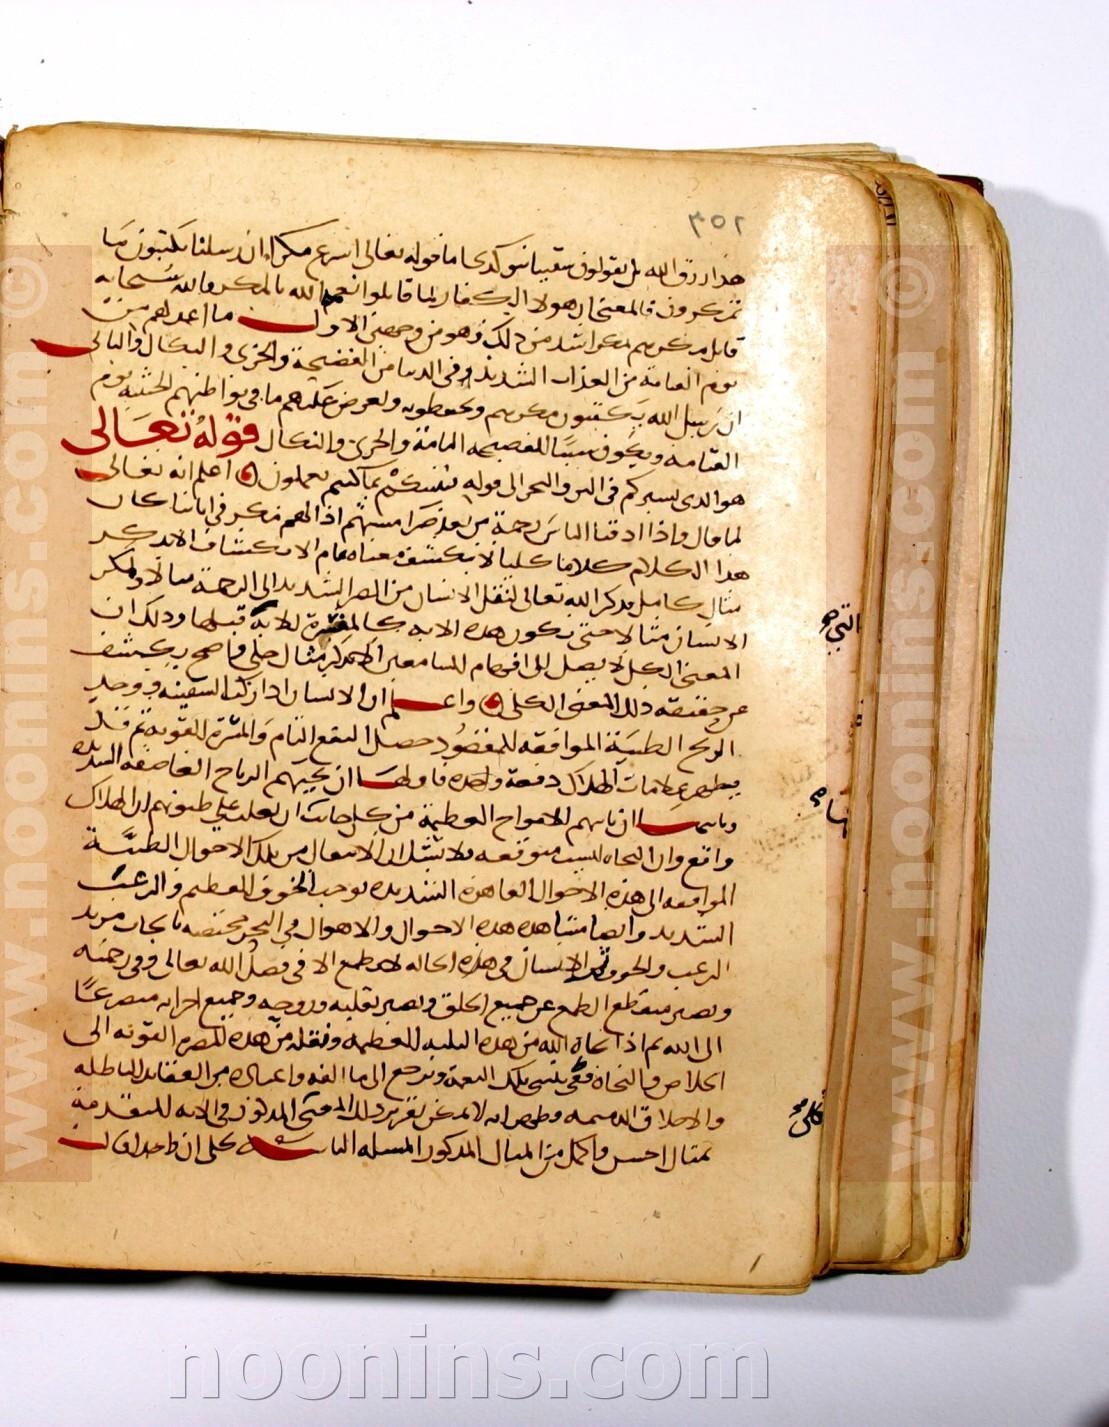 ٢٥٣
هذا رزق الله بل يقولون سقينا بنوء كذا اما قوله تعالى اسرع مكرا ان رسلنا يكتبون ما
تمكرون فالمعنى ان هولا الكفار لما قابلوا نعمة الله بالمكر فالله سبحانه
قابل مكرهم بمكر اشد من ذلك وهو من وجهين الاول ما اعد لهم من
يوم القيامة من العذاب الشديد وفي الدنيا من الفضيحة والخزي والنكال والثاني
ان رسل الله يكتبون مكرهم ويحفظونه وتعرض عليهم ما في بواطنهم الخبيثة يوم
القيامة ويكون سببا للفضيحة التامة والخزي والنكال قوله تعالى
هو الذي يسيركم في البر والبحر الى قوله ننبئكم بما كنتم تعملون اعلم انه تعالى
لما قال واذا اذقنا الناس رحمة من بعد ضرا مستهم اذا لهم مكر في اياتنا كان
هذا الكلام كلاما كليا لا ينكشف معناه تمام الانكشاف الا بذكر
مثال كامل فذكر الله تعالى لنقل الانسان من الضر الشديد الى الرحمة مثالا ولمكر
الانسان مثالا حتى تكون هذه الاية كالمفسرة للاية قبلها وذلك ان
المعنى الكلي لا يصل الى افهام السامعين الا بذكر مثال جلي واضح يكشف
عن حقيقة ذلك المعنى الكلي واعلم ان الانسان اذا ركب السفينة ووجد
الريح الطيبة الموافقة للمقصود حصل النفع التام والمسرة القوية ثم قد
يظهر علامات الهلاك دفعة واحدة فاولها ان تجيهم الرياح العاصفة الشديدة
وثانيها ان ياتيهم الامواج العظيمة من كل جانب ان يغلب على ظنونهم ان الهلاك
واقع وان النجاة ليست متوقعة ولا شك ان الانتقال من تلك الاحوال الطيبة
الموافقة الى هذه الاحوال القاهرة الشديدة يوجب الخوف العظيم والرعب
الشديد وايضا مشاهدة هذه الاحوال والاهوال في البحر مختصة بايجاب مزيد
الرعب والخوف ثم الانسان في هذه الحالة لا يطمع الا في فضل الله تعالى وفي رحمته
ويصير منقطع الطمع عن جميع الخلق ويصير بقلبه وروحه وجميع اجزايه متضرعا
الى الله ثم اذا نجاه الله من هذه البلية العظيمة ونقله من هذه المضرة القوية الى
الخلاص والنجاة ففي ينسى تلك النعمة ويرجع الى ما الفه واعتاده من العقايد الباطلة
والاخلاق الذميمة وظهر انه لا يمكن تقرير ذلك المعنى المذكور في الاية المتقدمة
بمثال احسن واكمل من المثال المذكور المسلة الثانية يحكى ان واحدا قال